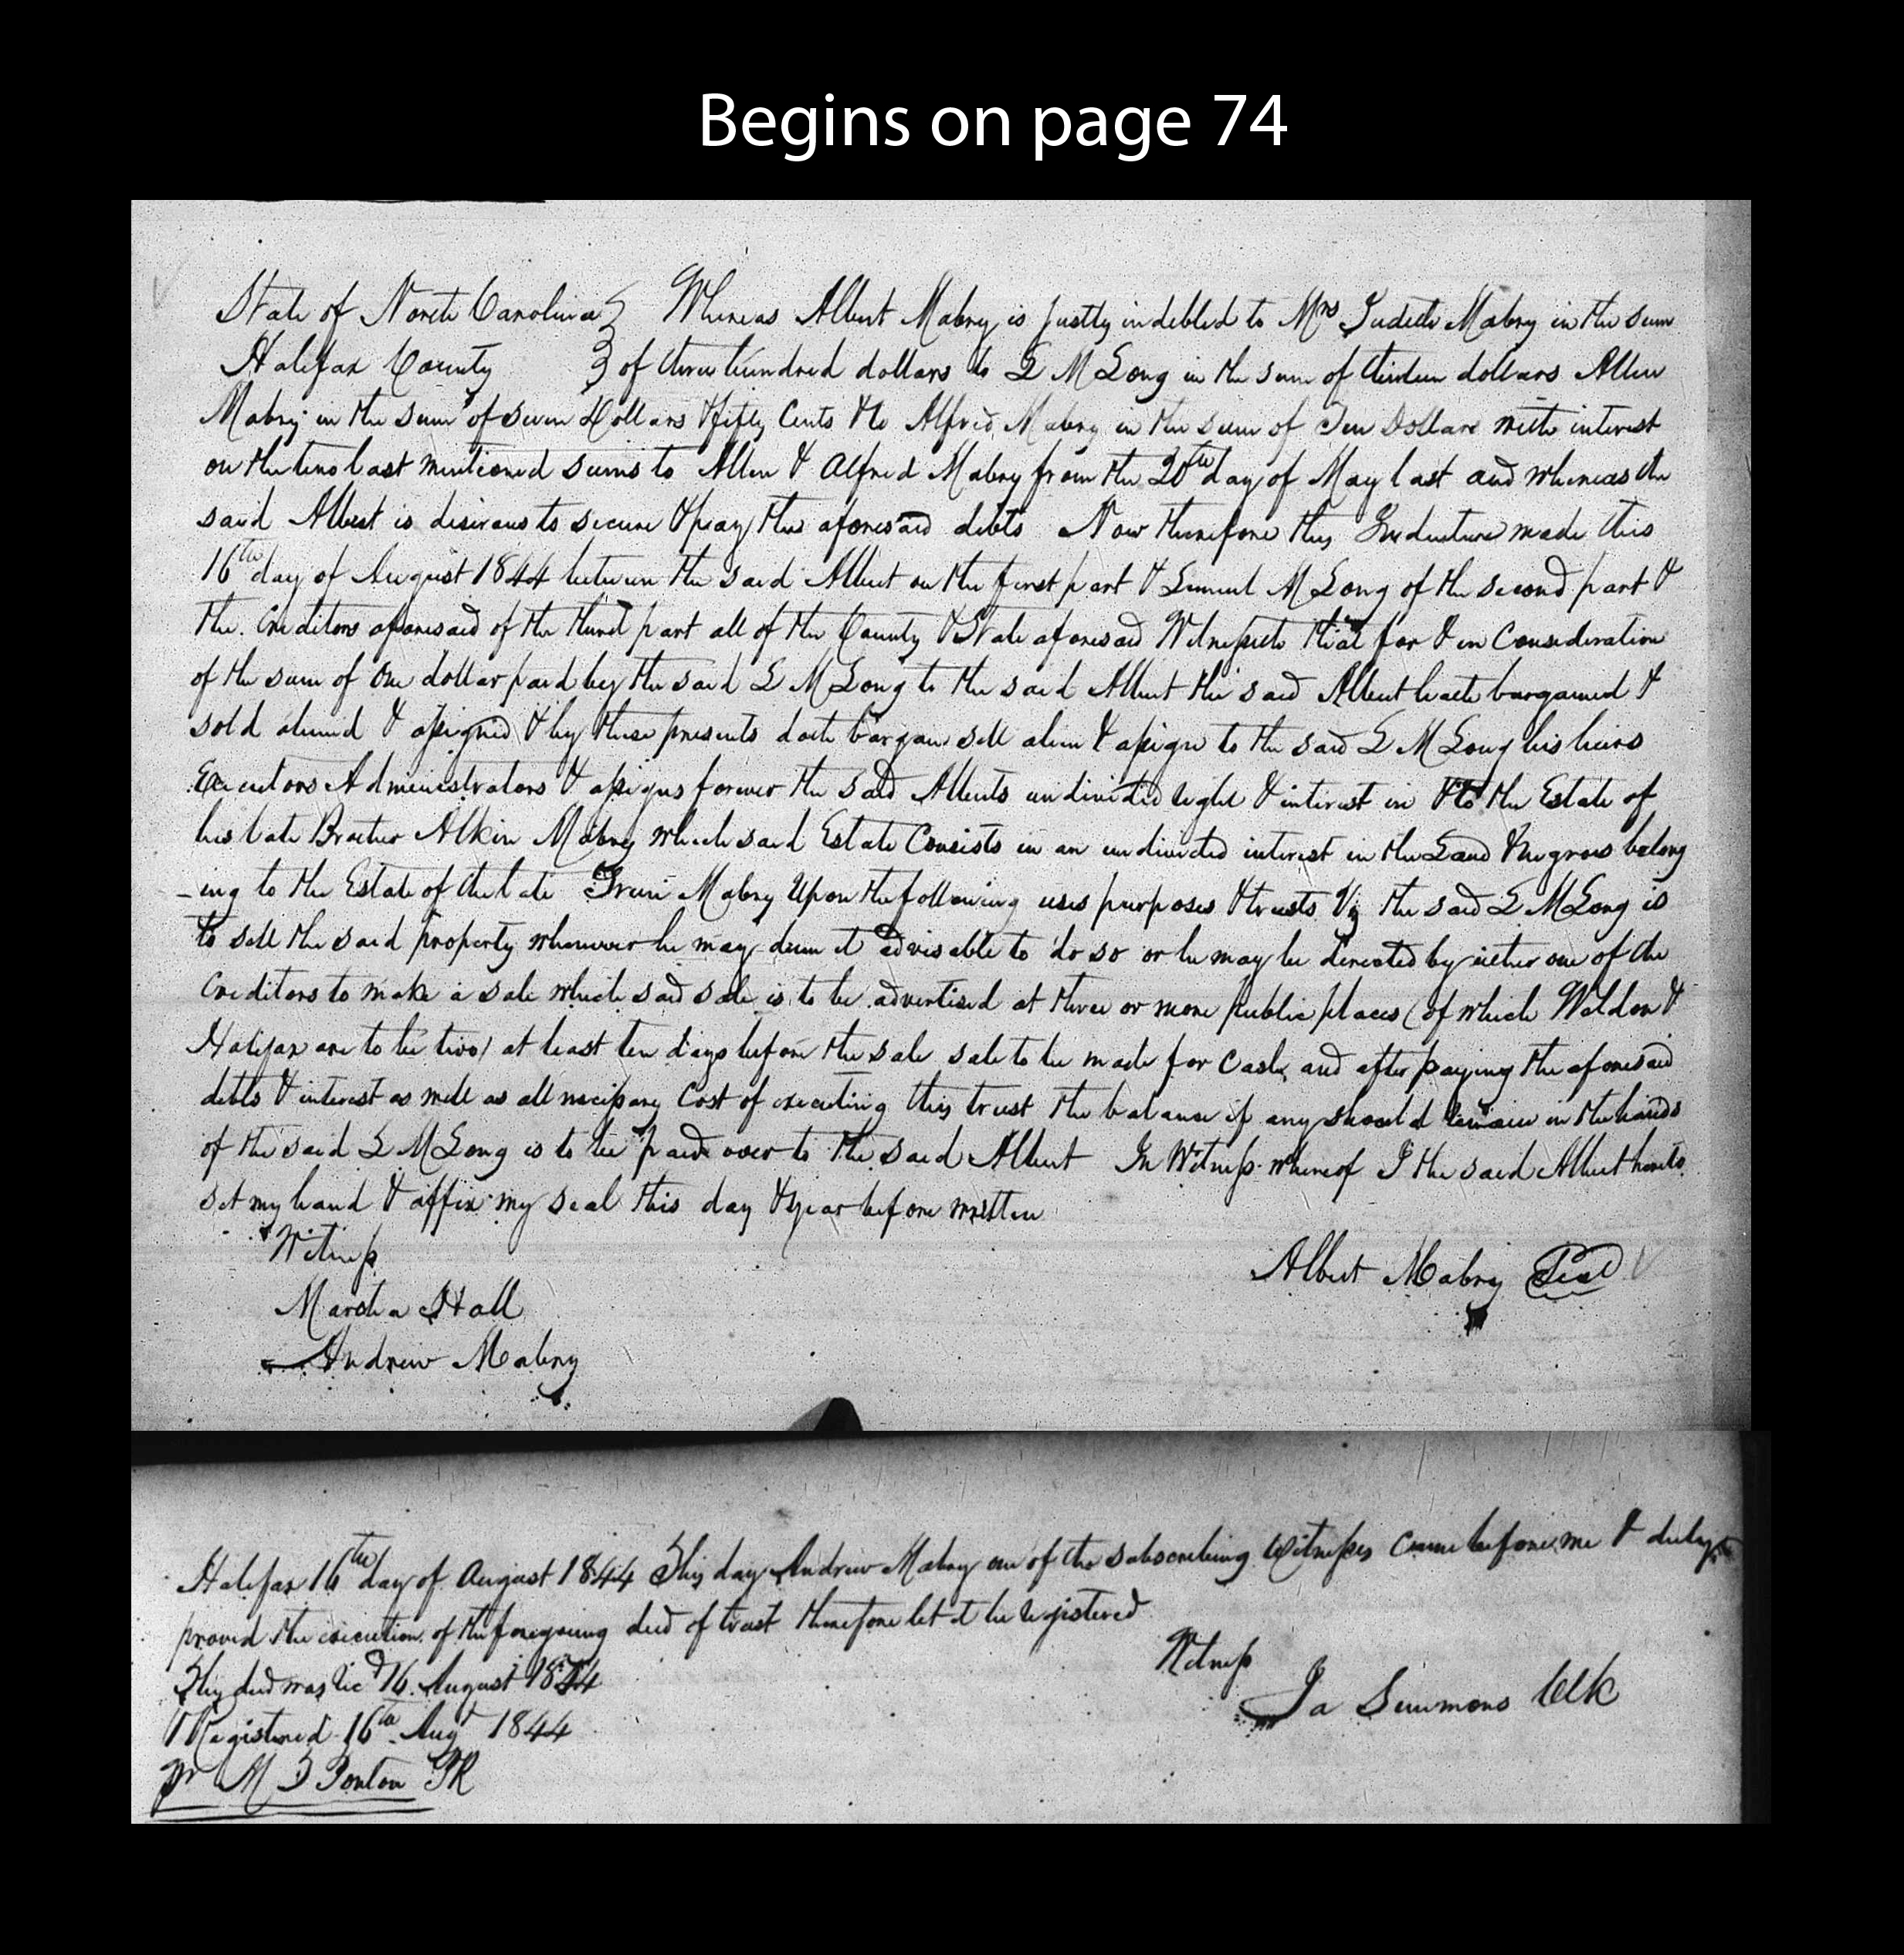 Begins on page 74
State of North Carolina } Whereas Albert Mabry is justly indebted to Mrs Judith Mabry in the sum
Halifax County } of three hundred dollars to L M Long in the sum of thirteen dollars Allen
Mabry in the sum of seven Dollars & fifty Cents & to Alfred Mabry in the sum of Ten Dollars with interest
on the two last mentioned sums to Allen & Alfred Mabry from the 20th day of May last and whereas the
said Albert is desirous to secure & pay the aforesaid debts Now therefore this Indenture made this
16th day of August 1844 between the said Albert on the first part & Lemuel M Long of the second part &
the Creditors aforesaid of the third part all of the County & State aforesaid Witnesseth that for & in Consideration
of the sum of One dollar paid by the said L M Long to the said Albert the said Albert hath bargained &
sold aliened & assigned & by these presents doth bargain sell alien & assign to the said L M Long his heirs
Executors Administrators & assigns forever the said Alberts undivided right & interest in & to the Estate of
his late Brother Alkin Mabry which said Estate Consists in an undivided interest in the Land & negroes belong
-ing to the Estate of the late Mabry Upon the following uses purposes & trusts Viz the said L M Long is
to sell the said property whenever he may deem it advisable to do so or he may be directed by either one of the
Creditors to make a sale which said sale is to be advertised at three or more public places (of which Weldon &
Halifax are to be two) at least ten days before the sale sale to be made for Cash and after paying the aforesaid
debts & interest as well as all necessary Cost of executing this trust the balance if any should remain in the hands
of the said L M Long is to be paid over to the said Albert In Witness whereof I the said Albert hereto
set my hand & affix my seal this day & year before written
Witness
Albert Mabry Seal
Martha Hall
Andrew Mabry
Halifax 16th day of August 1844 This day Andrew Mabry one of the subscribing Witnesses Came before me & duly
proved the execution of the foregoing deed of trust therefore let it be registered
Witness
This deed was recd 16 August 1844
Ja Simmons Clk
& Registered 16th Augt 1844
pr M Ponton PR